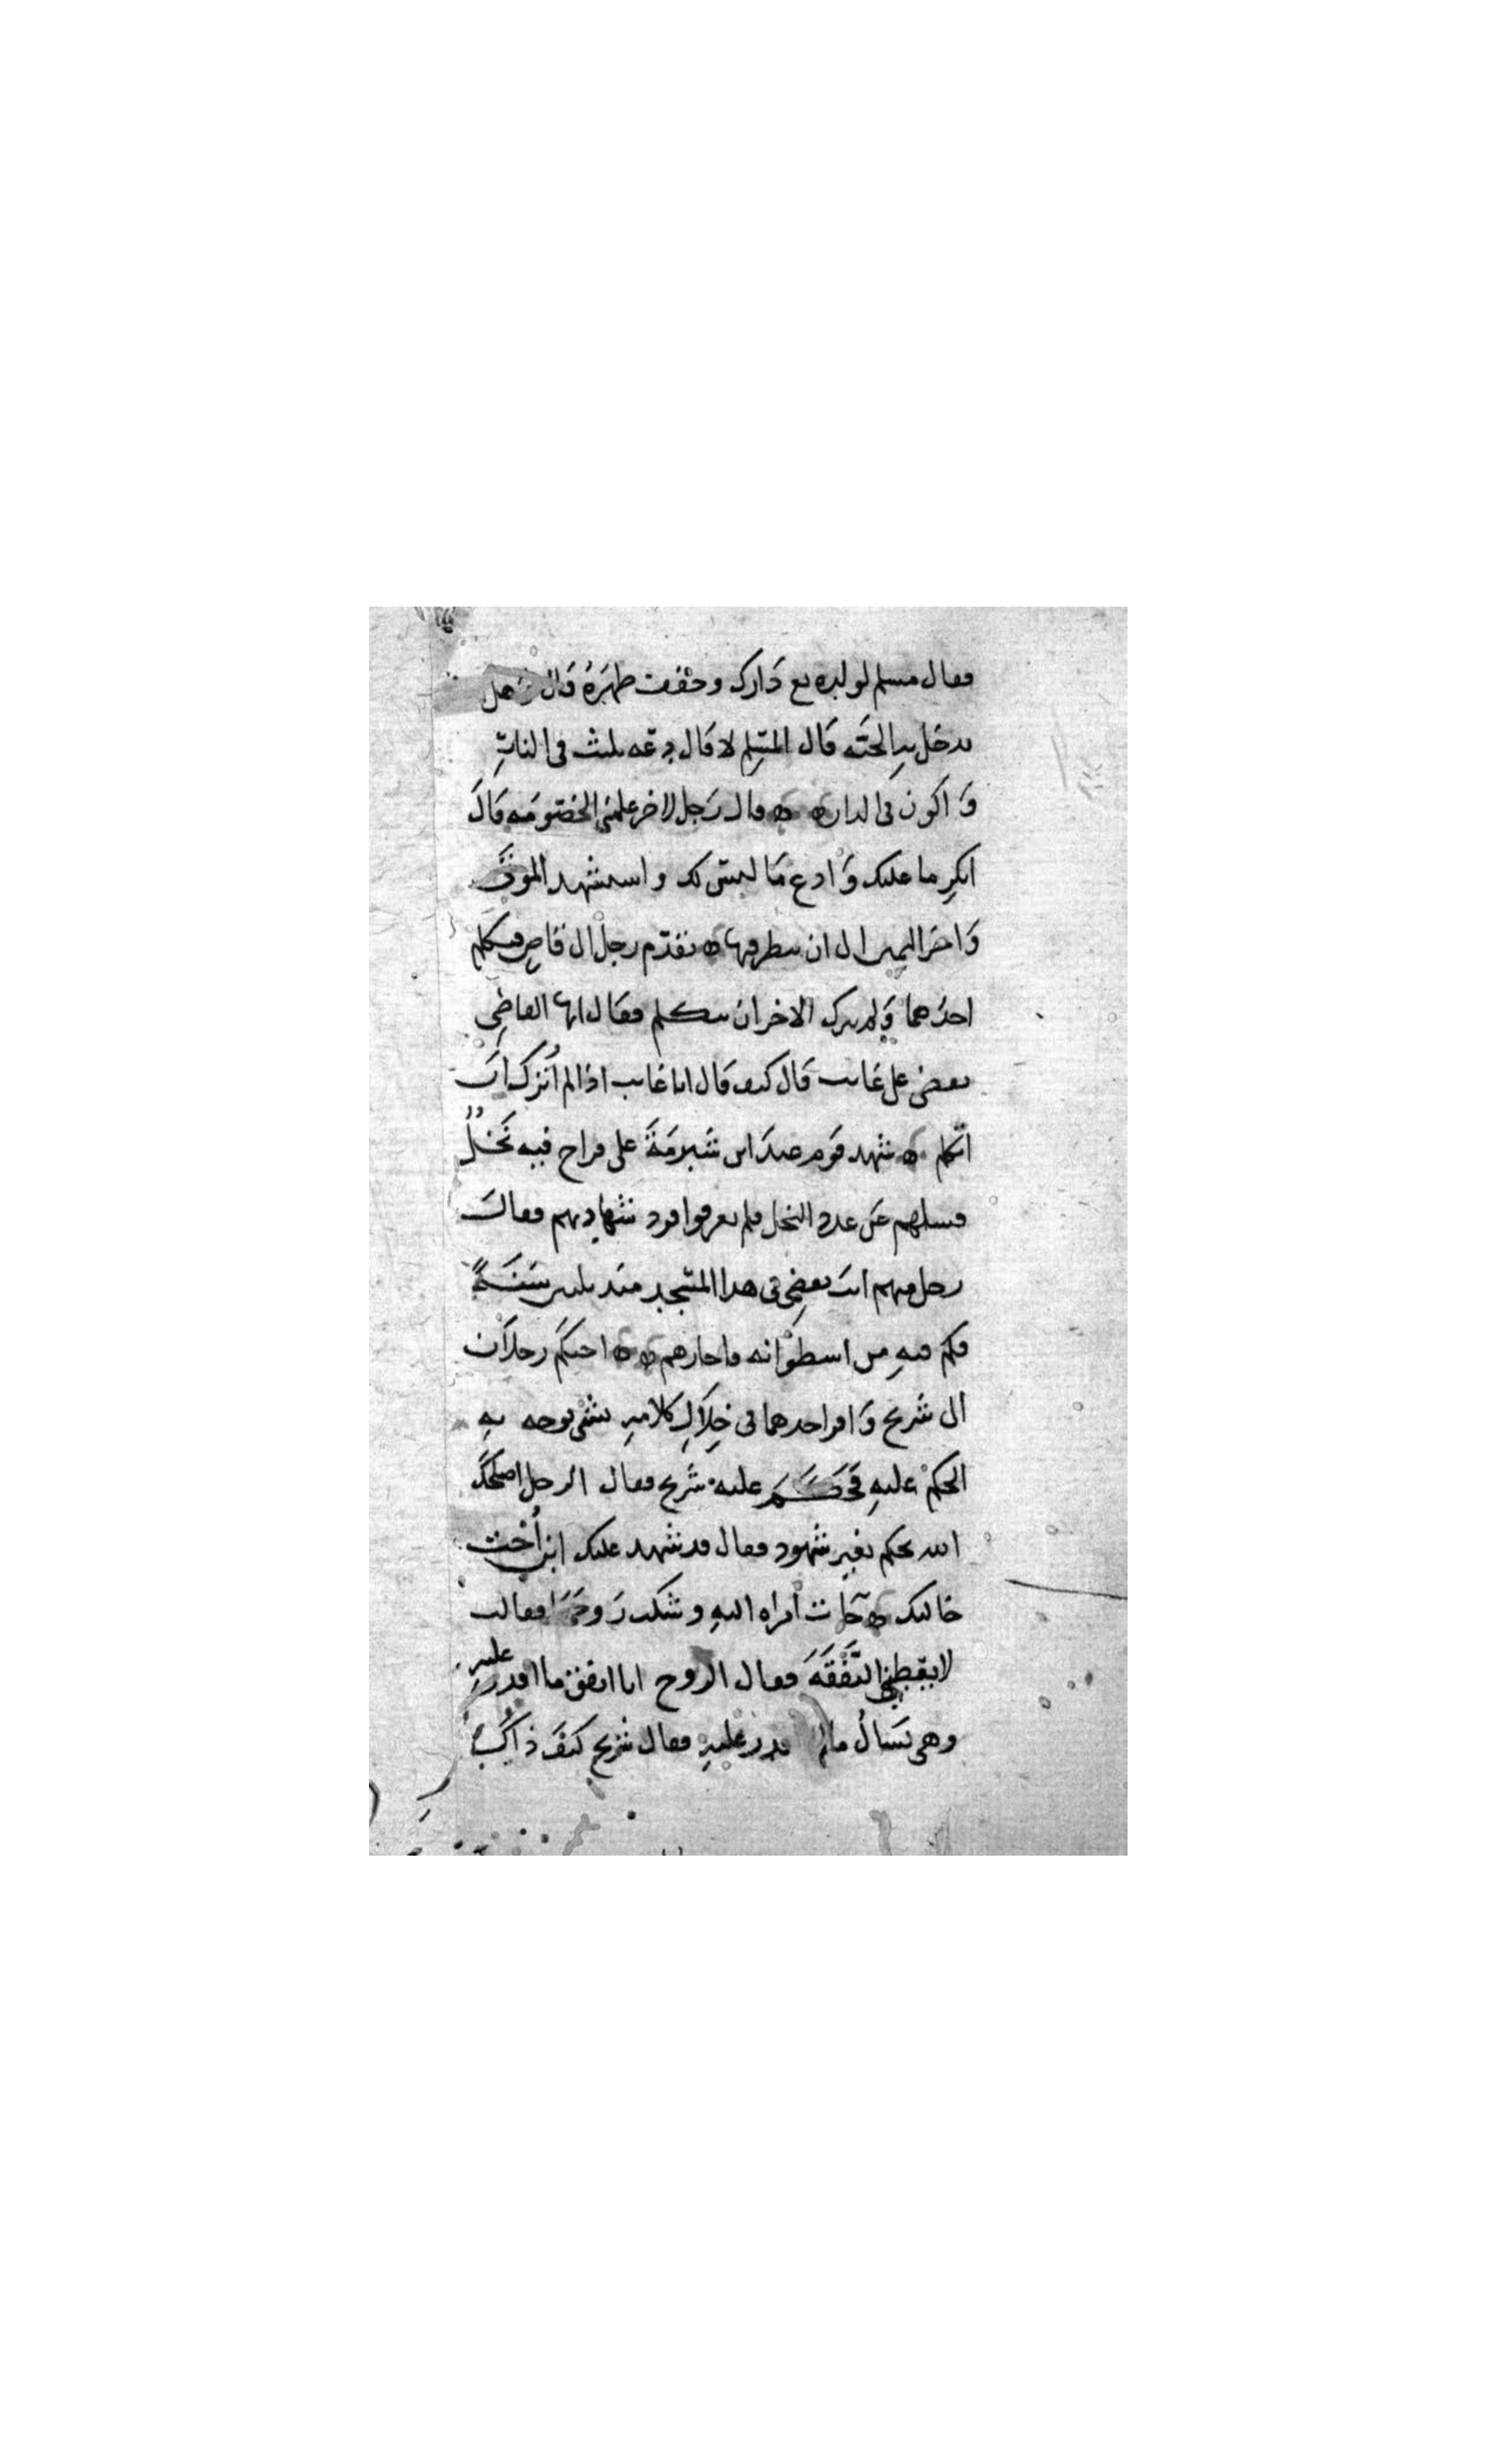 فقال مسلم لو لبده بع دارك وخففت ظهره قال هل
يدخل بيا الجنه قال المسلم لا قال دعه يلبث فى النار
وَاكون فى الدار ه ه وقال رَجل لاخر علمنى الخصومَه قالَ
انكِر ما عليك وَادع مَا ليسَ لك واستشهد الموتَى
وَاخر اليمين الى ان ينظر فيها ه تقدّم رجلان الى قاضٍ فتكلم
احدُهما وَلم يترك الاخر ان يتكلم فقال ايها القاضِى
يقضى على غائب قال كيف قال انا غايب اذا لم اُترَك اَن
اتكلم ه شهد قوم عندَ ابن شُبرمَةَ على قراح فيه نَخلٌ
فسلهم عَن عدد النخل فلم يعرفوا فرد شهادتهم فقالَ
رجل منهم انتَ تقضِى فى هذا المسجد منذ ثلثين سَنَةً
فكم فيهِ من اسطوَانه فاجازهم ه ه احتكَم رجلاَن
الى شريح وَاقر احدهما فى خِلاَلِ كلامِهِ بشى توجه بهِ
الحكمْ عليهِ فَحَكَمَ عليه شريح فقال الرجل اصلحكَ
الله تحكم بغير شهود فقال قد شهد عليك ابن اُخت
خالتك ه جَاءت امراه اليهِ وشكت زَوجَهَا فقالت
لا يعطينى النَّفَقَهَ فقال الزوج انا انفق ما اقدر عليهِ
وهى تسَالُ ما لا اقدر عليهِ فقال شريح كيفَ ذَاكَ